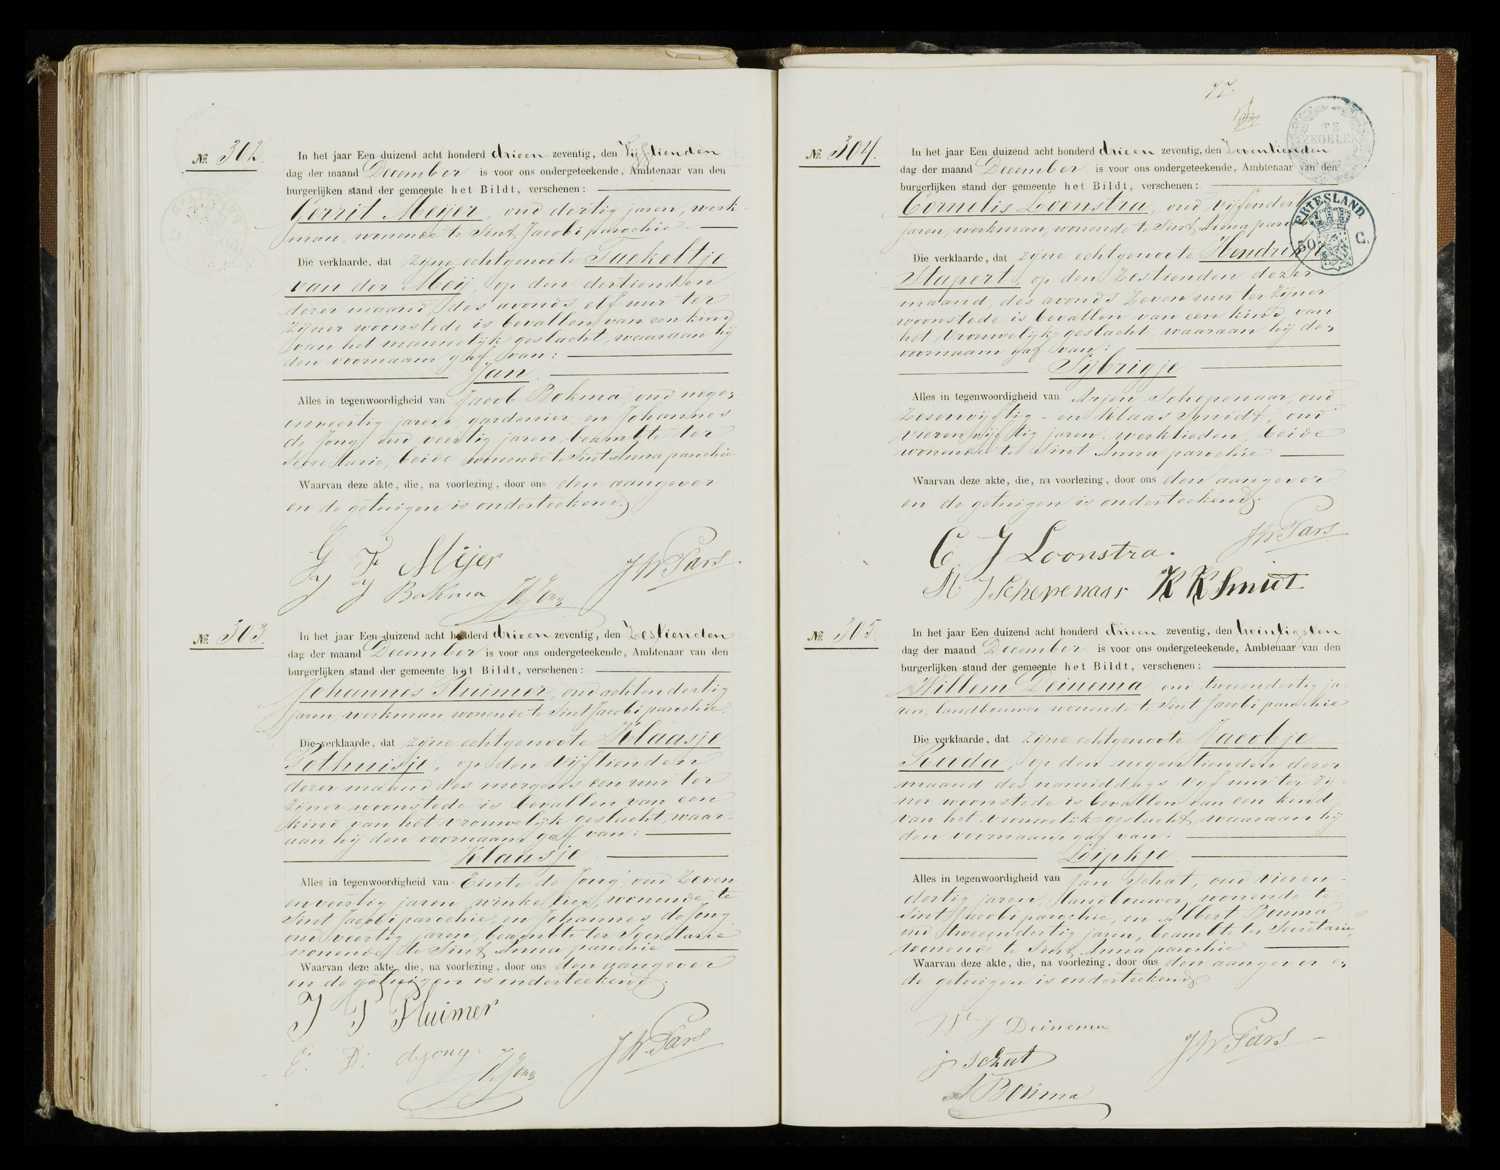 №. 302.
In het jaar Een duizend acht honderd drieen zeventig, den Vijftienden
dag der maand December is voor ons ondergeteekende, Ambtenaar van den
burgerlijken stand der gemeente het Bildt, verschenen:
Gerrit Meijer, oud dertig jaren, werk-
man, wonende te Sint Jacobi parochie
Die verklaarde, dat zijne echtgenoote Taekeltje
van der Meij, op den dertienden
dezer maand, des avonds elf uur ter
zijner woonstede is bevallen van een kind
van het mannelijk geslacht, waaraan hij
den voornaam gaf van:
Jan
Alles in tegenwoordigheid van Jacob Bokma, oud negen
enveertig jaren, gardenier en Johannes
de Jong, oud veertig jaren, beambte ter
Secretarie, beide wonende te Sint Anna parochie
Waarvan deze akte, die, na voorlezing, door ons den aangever
en de getuigen is onderteekend.
G J Meijer
J W Pars
Bokma
№. 303.
In het jaar Een duizend acht honderd drieen zeventig, den Zestienden
dag der maand December is voor ons ondergeteekende, Ambtenaar van den
burgerlijken stand der gemeente het Bildt, verschenen:
Johannes Pluimer, oud achtendertig
jaren werkman wonende te Sint Jacobi parochie.
Die verklaarde, dat zijne echtgenoote Klaasje
Polhuisje, op den Vijftienden
dezer maand des morgens een uur ter
zijner woonstede is bevallen van een
kind van het vrouwelijk geslacht, waar-
aan hij den voornaam gaf van:
Klaasje
Alles in tegenwoordigheid van de Jong, oud zeven
enveertig jaren, winkelier, wonende te
Sint Jacobi parochie, en Johannes de Jong
oud veertig jaren, beambte ter Secretarie
wonende te Sint Anna parochie
Waarvan deze akte, die, na voorlezing, door ons den aangever
en de getuigen is onderteekend.
J P Pluimer
J W Pars
E. D. djong.
77.
№. 304.
In het jaar Een duizend acht honderd drieen zeventig, den Zeventienden
dag der maand December is voor ons ondergeteekende, Ambtenaar van den
burgerlijken stand der gemeente het Bildt, verschenen:
FRIESLAND
50 C.
Cornelis Loonstra, oud vijfendertig
jaren, werkman, wonende te Sint Anna parochie
Die verklaarde, dat zijne echtgenoote Hendrikje
Stapert, op den Zestienden dezer
maand, des avonds Zeven uur ter zijner
woonstede is bevallen van een kind van
het vrouwelijk geslacht waaraan hij den
voornaam gaf van:
Sijbrigje
Alles in tegenwoordigheid van Arjen Schepenaar, oud
Zesenvijftig- en Klaas Smidt, oud
vierenvijftig jaren, werklieden, beide
wonende te Sint Anna parochie
Waarvan deze akte, die, na voorlezing, door ons den aangever
en de getuigen is onderteekend.
C J Loonstra.
J W Pars
A J Schepenaar K K Smidt
№. 305.
In het jaar Een duizend acht honderd drieen zeventig, den twintigsten
dag der maand December is voor ons ondergeteekende, Ambtenaar van den
burgerlijken stand der gemeente het Bildt, verschenen:
Willem Deinema oud tweeendertig ja-
ren, landbouwer wonende te Sint Jacobi parochie
Die verklaarde, dat zijne echtgenoote Jacobje
Douda, op den negentienden dezer
maand des namiddags vijf uur ter zij-
ner woonstede is bevallen van een kind
van het vrouwelijk geslacht, waaraan hij
den voornaam gaf van:
Leipkje
Alles in tegenwoordigheid van Jan Schat, oud vieren-
dertig jaren, landbouwer, wonende te
Sint Jacobi parochie, en Albert Bouma
oud tweeendertig jaren, beambte ter Secretarie
wonende te Sint Anna parochie
Waarvan deze akte, die, na voorlezing, door ons den aangever en
de getuigen is onderteekend.
W J Deinema
J W Pars
J Schat
A Bouma